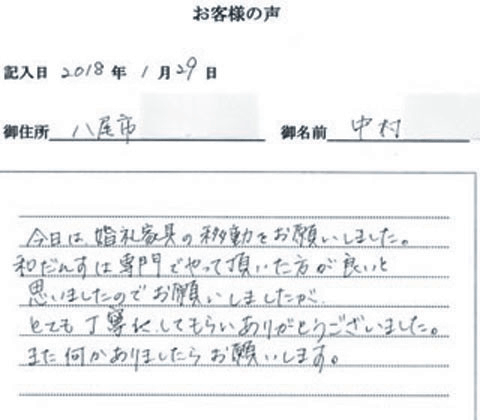 お客様の声
記入日 2018 年 1 月 29 日
御住所 八尾市 御名前 中村
今日は、婚礼家具の移動をお願いしました。
和だんすは専門でやって頂いた方が良いと
思いましたのでお願いしましたが、
とても丁寧にしてもらいありがとうございました。
また何かありましたらお願いします。